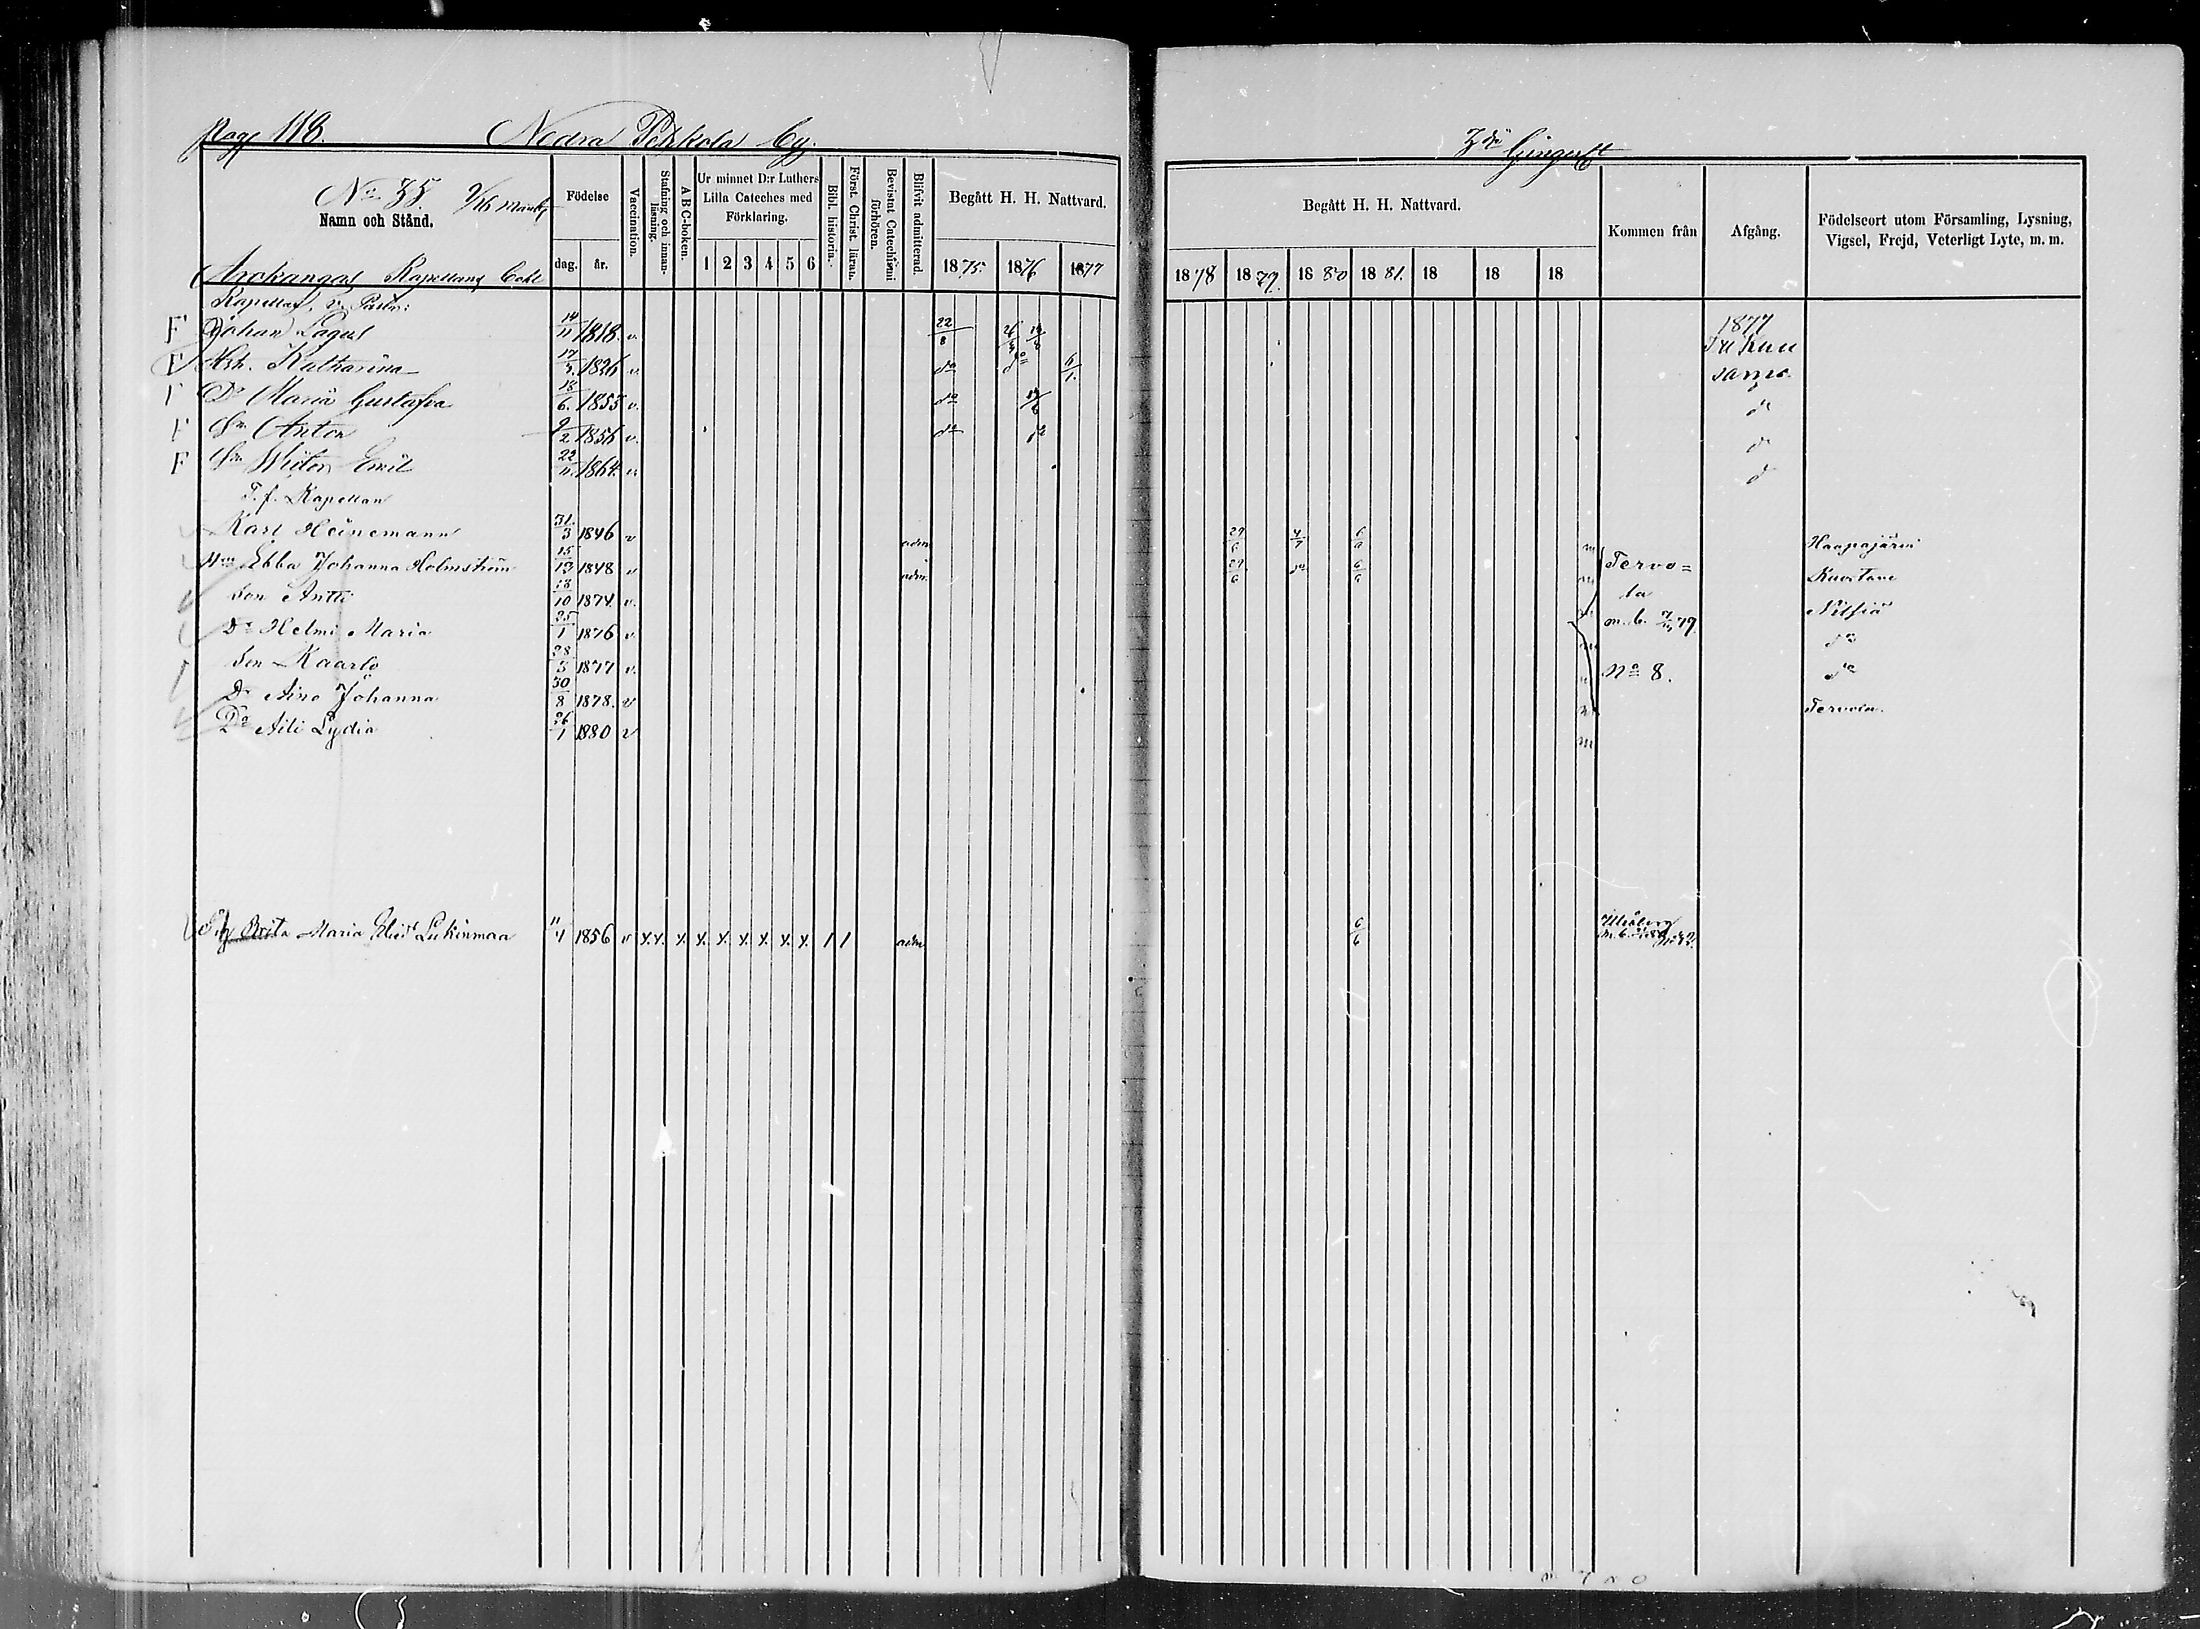 Pag. 118. Nedra Pehkola by.
No 35.
Namn och Stånd.
Födelse
dag. år.
Vaccination.
Stafning och innanläsning.
A B C-boken.
Ur minnet D:r Luthers Lilla Cateches med Förklaring.
1 2 3 4 5 6
Bibl. historia.
Först. Christ. läran.
Bevistat Catechismi förhören.
Blifvit admitterad.
Begått H. H. Nattvard.
1875. 1876 1877
Archangel Kapellans
Johan Lagus 14/11 1818. v. 22/8
F Katharina 1826 v. do do 6/1.
F Dr Maria Gustafva 18/6. 1855 v. do
F Sn Anton 9/2 1856 v. do do
F Sn Emil 22/11 1864. v.
T. f. Kapellan
Karl Heinemann 31/3 1846 v adm
Ebba Johanna Holmström 1848 v adm.
Son Antti 18/10 1874. v.
Dr Helmi Maria 25/1 1876 v
Son Kaarlo 28/5 1877 v.
Dr Aino Johanna 30/8 1878. v
Dr Aili Lydia 26/1 1880 v
Brita Maria Lukinmaa 11/4 1856 v x x x x x x x x x 1 1 adm
3dje Gingerft
Begått H. H. Nattvard.
1878 1879. 1880 1881. 18 18 18
Kommen från
Afgång.
Födelseort utom Församling, Lysning, Vigsel, Frejd, Veterligt Lyte, m. m.
1877
do
do
do
29/6 4/7 6/6 m Haapajärvi
29/6 do 6/6 m Tervo=
la Nilsiä
m. b. 79. do
No 8. do
Tervola.
m
6/6 Uleåborg